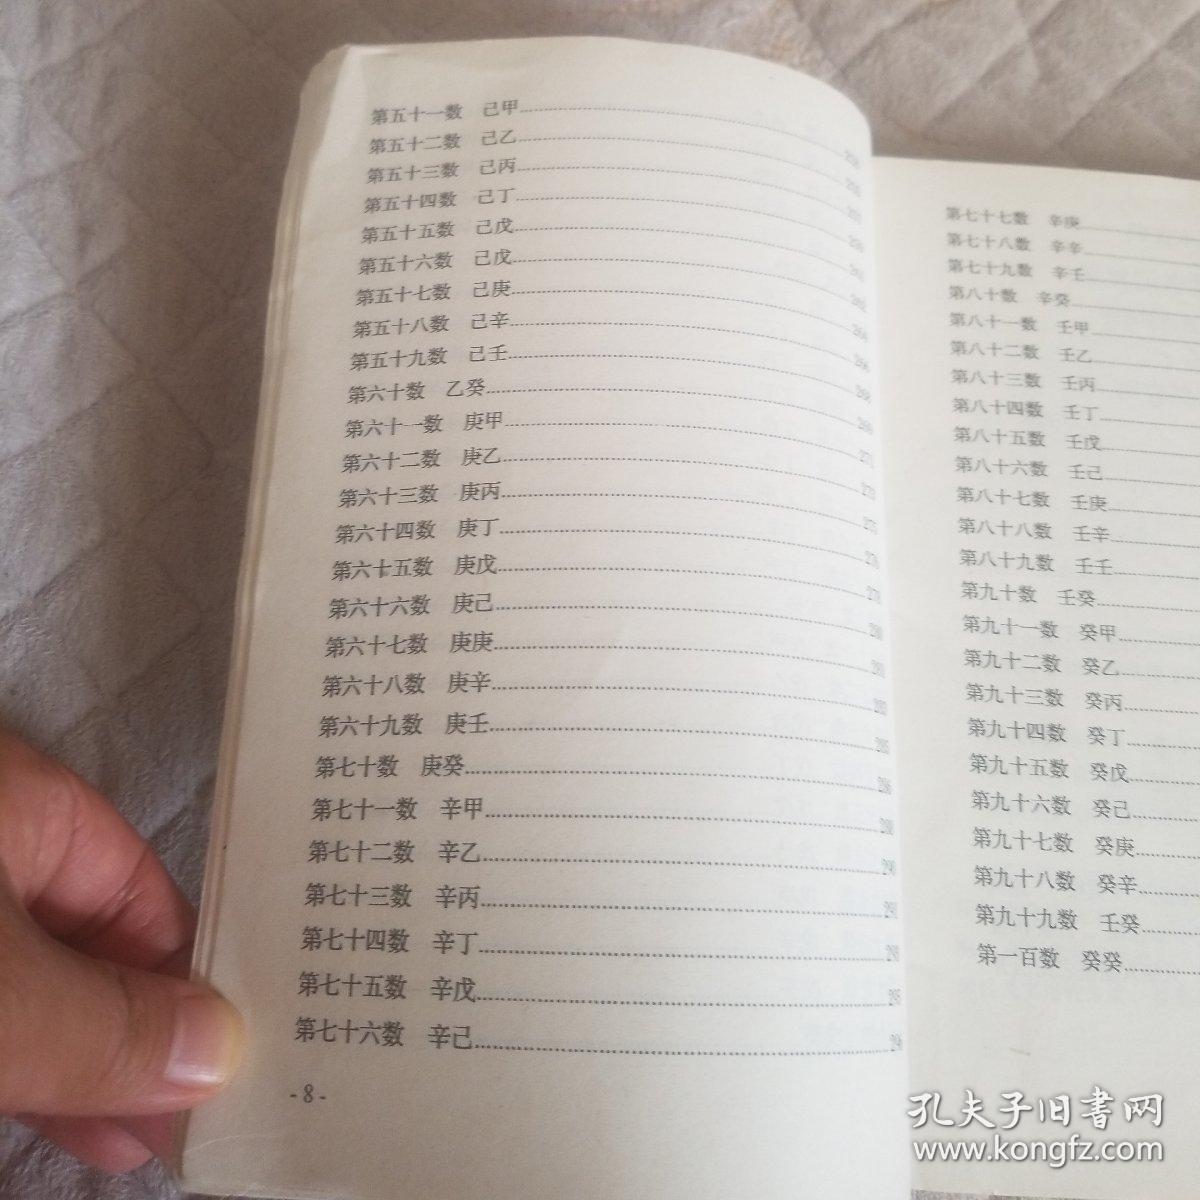 第五十一数 己甲
第五十二数 己乙
第五十三数 己丙
第五十四数 己丁
第五十五数 己戊
第五十六数 己戊
第五十七数 己庚
第五十八数 己辛
第五十九数 己壬
第六十数 乙癸
第六十一数 庚甲
第六十二数 庚乙 271
第六十三数 庚丙
第六十四数 庚丁 275
第六十五数 庚戊 276
第六十六数 庚己
第六十七数 庚庚
第六十八数 庚辛
第六十九数 庚壬 285
第七十数 庚癸 286
第七十一数 辛甲
第七十二数 辛乙 290
第七十三数 辛丙 291
第七十四数 辛丁
第七十五数 辛戊
第七十六数 辛己
- 8 -
第七十七数 辛庚
第七十八数 辛辛
第七十九数 辛壬
第八十数 辛癸
第八十一数 壬甲
第八十二数 壬乙
第八十三数 壬丙
第八十四数 壬丁
第八十五数 壬戊
第八十六数 壬己
第八十七数 壬庚
第八十八数 壬辛
第八十九数 壬壬
第九十数 壬癸
第九十一数 癸甲
第九十二数 癸乙
第九十三数 癸丙
第九十四数 癸丁
第九十五数 癸戊
第九十六数 癸己
第九十七数 癸庚
第九十八数 癸辛
第九十九数 壬癸
第一百数 癸癸
孔夫子旧书网
www.kongfz.com